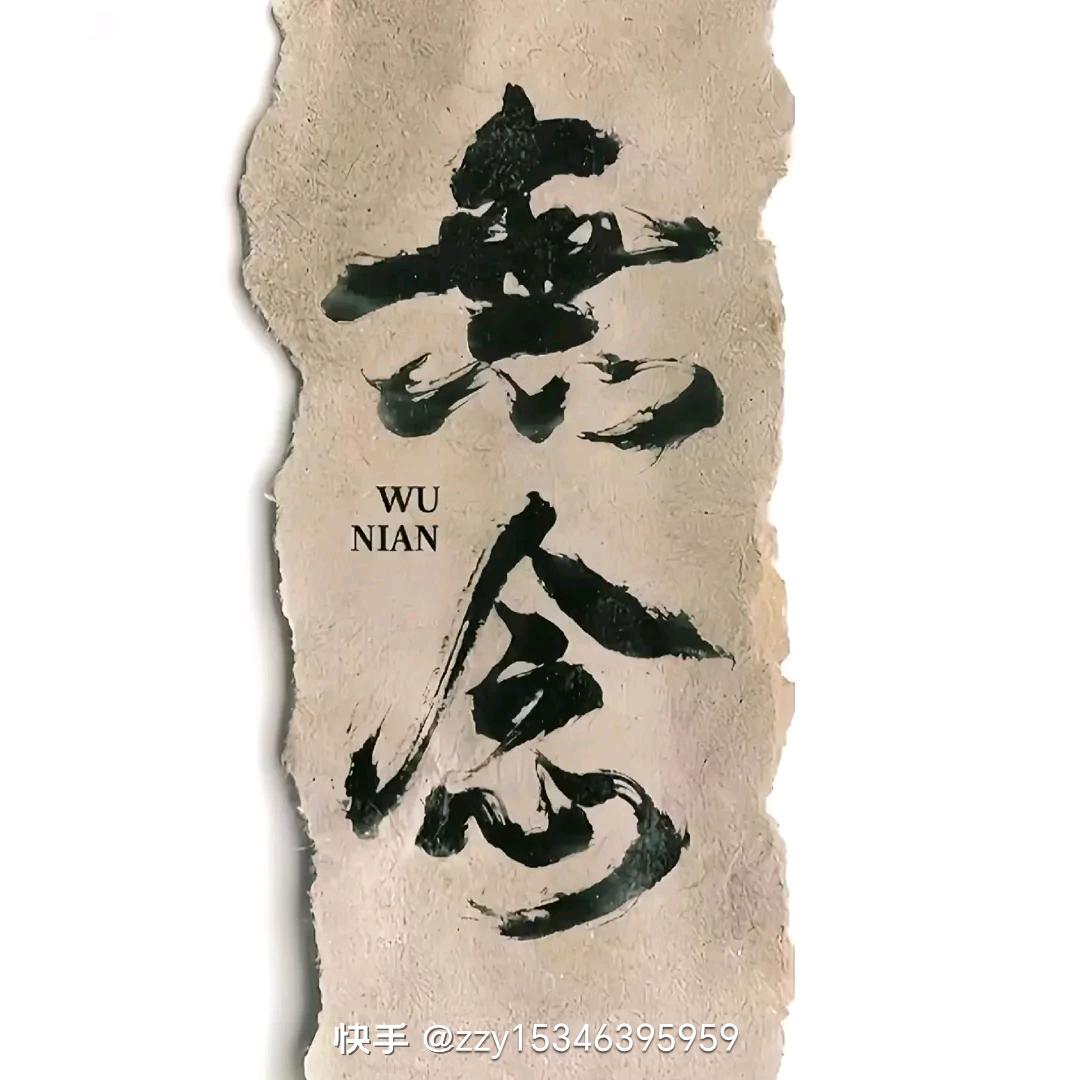 無念
WU
NIAN
快手 @zzy15346395959